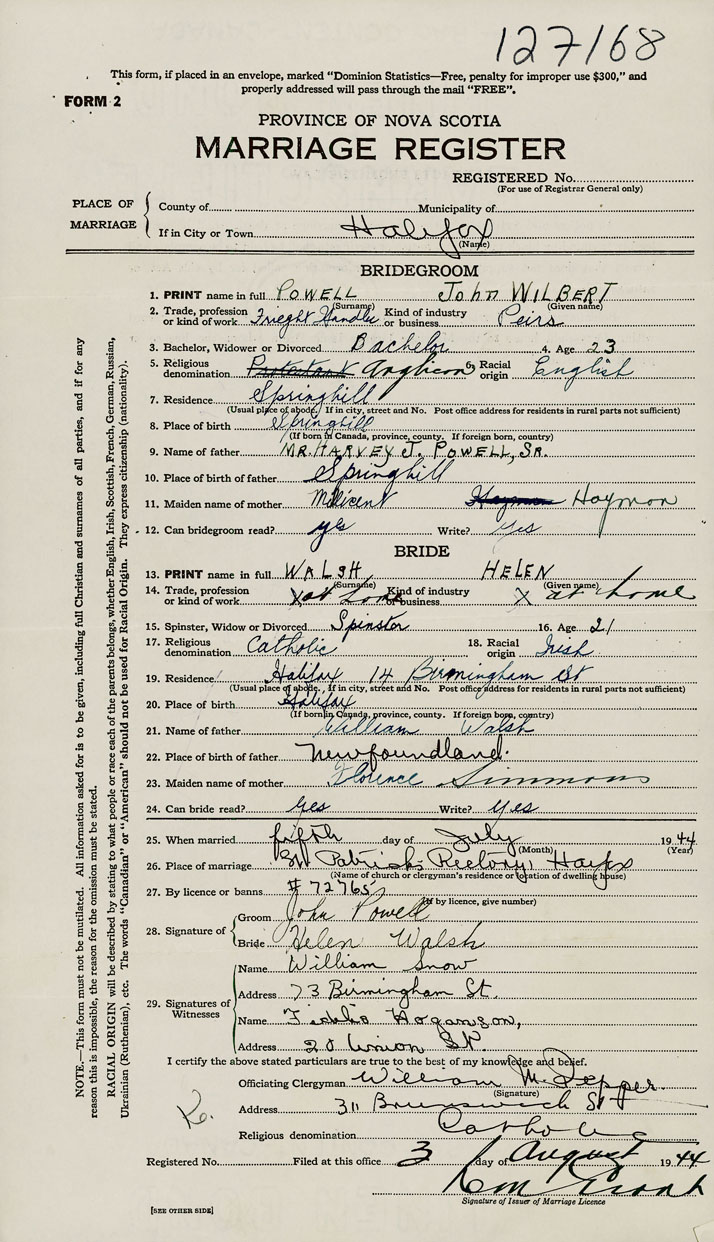 127168
This form, if placed in an envelope, marked "Dominion Statistics—Free, penalty for improper use $300," and
properly addressed will pass through the mail "FREE".
FORM 2
PROVINCE OF NOVA SCOTIA
MARRIAGE REGISTER
REGISTERED No.
(For use of Registrar General only)
PLACE OF MARRIAGE
County of Municipality of
If in City or Town Halifax
(Name)
BRIDEGROOM
1. PRINT name in full POWELL John WILBERT
(Surname) (Given name)
2. Trade, profession or kind of work Frieght Handler Kind of industry or business Peirs
3. Bachelor, Widower or Divorced Bachelor 4. Age 23
5. Religious denomination Protestant Anglican 6. Racial origin English
7. Residence Springhill
(Usual place of abode. If in city, street and No. Post office address for residents in rural parts not sufficient)
8. Place of birth Springhill
(If born in Canada, province, county. If foreign born, country)
9. Name of father MR. HARVEY J. POWELL, SR.
10. Place of birth of father Springhill
11. Maiden name of mother Milicent Haymon Haymon
12. Can bridegroom read? yes Write? yes
BRIDE
13. PRINT name in full WALSH HELEN
(Surname) (Given name)
14. Trade, profession or kind of work X at home Kind of industry or business X at home
15. Spinster, Widow or Divorced Spinster 16. Age 21
17. Religious denomination Catholic 18. Racial origin Irish
19. Residence Halifax 14 Birmingham St
(Usual place of abode. If in city, street and No. Post office address for residents in rural parts not sufficient)
20. Place of birth Halifax
(If born in Canada, province, county. If foreign born, country)
21. Name of father William Walsh
22. Place of birth of father Newfoundland.
23. Maiden name of mother Florence Simmons
24. Can bride read? yes Write? yes
25. When married fifth day of July 1944
(Month) (Year)
26. Place of marriage St Patricks Rectory, Halifax
(Name of church or clergyman's residence or location of dwelling house)
27. By licence or banns # 72765
(If by licence, give number)
28. Signature of
Groom John Powell
Bride Helen Walsh
29. Signatures of Witnesses
Name William Snow
Address 73 Birmingham St.
Name
Address 20 Union St.
I certify the above stated particulars are true to the best of my knowledge and belief.
Officiating Clergyman William M. Pepper.
(Signature)
Address 311 Brunswick St
Religious denomination Catholic
Registered No. Filed at this office 3 day of August 1944
Signature of Issuer of Marriage Licence
[SEE OTHER SIDE]
NOTE.—This form must not be mutilated. All information asked for is to be given, including full Christian and surnames of all parties, and if for any
reason this is impossible, the reason for the omission must be stated.
RACIAL ORIGIN will be described by stating to what people or race each of the parents belongs, whether English, Irish, Scottish, French, German, Russian,
Ukrainian (Ruthenian), etc. The words "Canadian" or "American" should not be used for Racial Origin. They express citizenship (nationality).